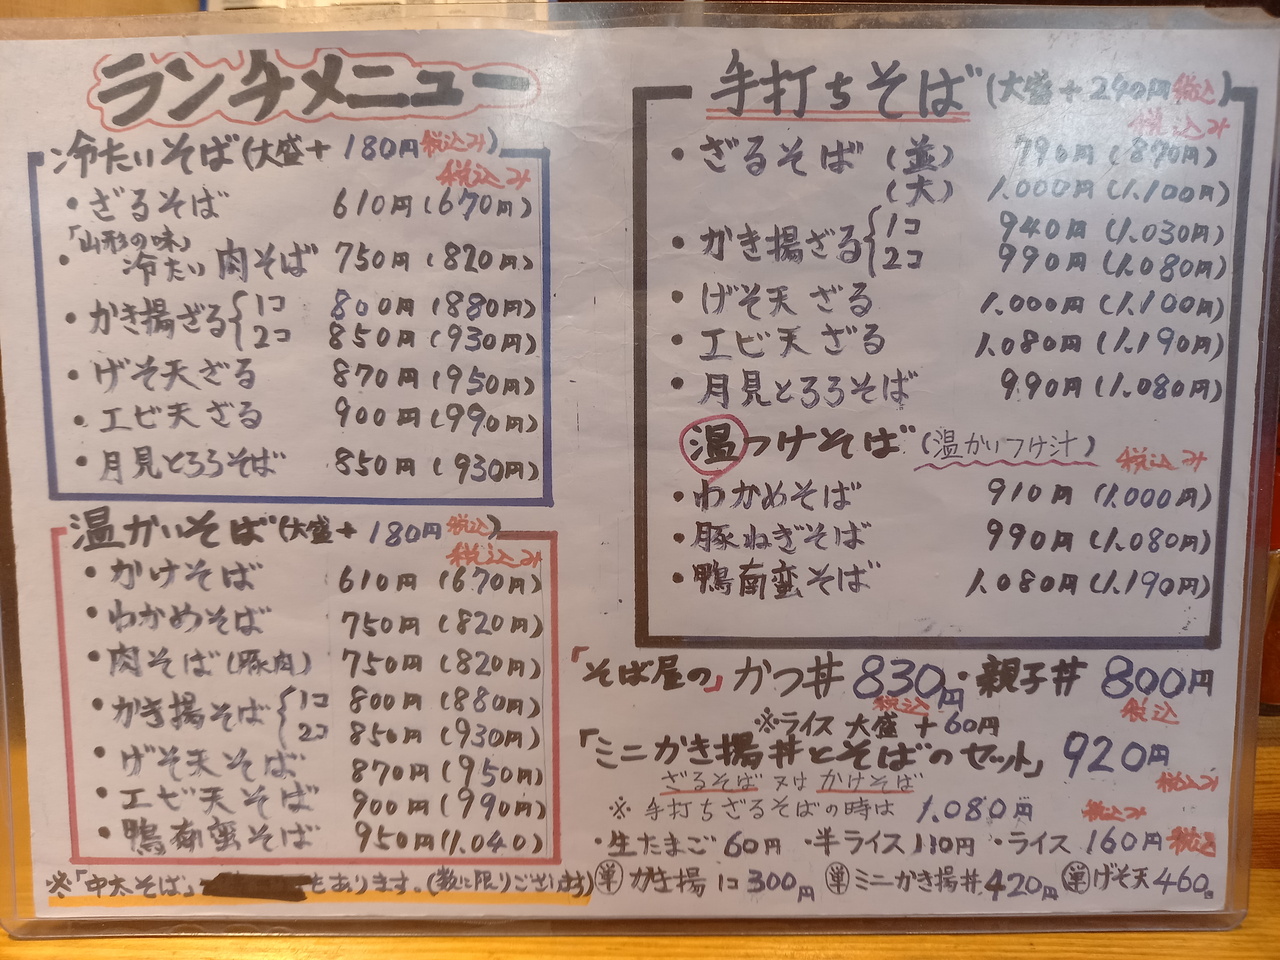 ランチメニュー
冷たいそば(大盛+180円税込み)
税込み
・ざるそば 610円(670円)
「山形の味」
・冷たい肉そば 750円(820円)
・かき揚ざる{1コ 800円(880円)
2コ 850円(930円)
・げそ天ざる 870円(950円)
・エビ天ざる 900円(990円)
・月見とろろそば 850円(930円)
温かいそば(大盛+180円税込)
税込み
・かけそば 610円(670円)
・わかめそば 750円(820円)
・肉そば(豚肉) 750円(820円)
・かき揚そば{1コ 800円(880円)
2コ 850円(930円)
・げそ天そば 870円(950円)
・エビ天そば 900円(990円)
・鴨南蛮そば 950円(1.040)
※「中太そば」もあります。(数に限りございます)
手打ちそば(大盛+240円税込)
税込み
・ざるそば(並) 790円(870円)
(大) 1.000円(1.100円)
・かき揚ざる{1コ 940円(1.030円)
2コ 990円(1.080円)
・げそ天ざる 1.000円(1.100円)
・エビ天ざる 1.080円(1.190円)
・月見とろろそば 990円(1.080円)
温つけそば(温かいつけ汁)
税込み
・わかめそば 910円(1.000円)
・豚ねぎそば 990円(1.080円)
・鴨南蛮そば 1.080円(1.190円)
「そば屋の」かつ丼 830円・親子丼 800円
税込 税込
※ライス大盛+60円
「ミニかき揚丼とそばのセット」920円
ざるそば又はかけそば 税込み
※手打ちざるそばの時は 1.080円
税込み
・生たまご60円 ・半ライス110円 ・ライス160円税込
単かき揚1コ300円 単ミニかき揚丼420円 単げそ天460円